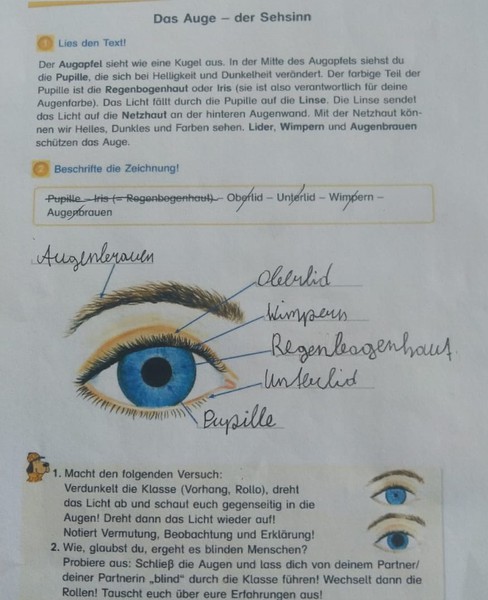 Das Auge – der Sehsinn
1 Lies den Text!
Der Augapfel sieht wie eine Kugel aus. In der Mitte des Augapfels siehst du
die Pupille, die sich bei Helligkeit und Dunkelheit verändert. Der farbige Teil der
Pupille ist die Regenbogenhaut oder Iris (sie ist also verantwortlich für deine
Augenfarbe). Das Licht fällt durch die Pupille auf die Linse. Die Linse sendet
das Licht auf die Netzhaut an der hinteren Augenwand. Mit der Netzhaut kön-
nen wir Helles, Dunkles und Farben sehen. Lider, Wimpern und Augenbrauen
schützen das Auge.
2 Beschrifte die Zeichnung!
Pupille – Iris (= Regenbogenhaut) – Oberlid – Unterlid – Wimpern –
Augenbrauen
Augenbrauen
Oberlid
Wimpern
Regenbogenhaut
Unterlid
Pupille
1. Macht den folgenden Versuch:
Verdunkelt die Klasse (Vorhang, Rollo), dreht
das Licht ab und schaut euch gegenseitig in die
Augen! Dreht dann das Licht wieder auf!
Notiert Vermutung, Beobachtung und Erklärung!
2. Wie, glaubst du, ergeht es blinden Menschen?
Probiere aus: Schließ die Augen und lass dich von deinem Partner/
deiner Partnerin „blind" durch die Klasse führen! Wechselt dann die
Rollen! Tauscht euch über eure Erfahrungen aus!